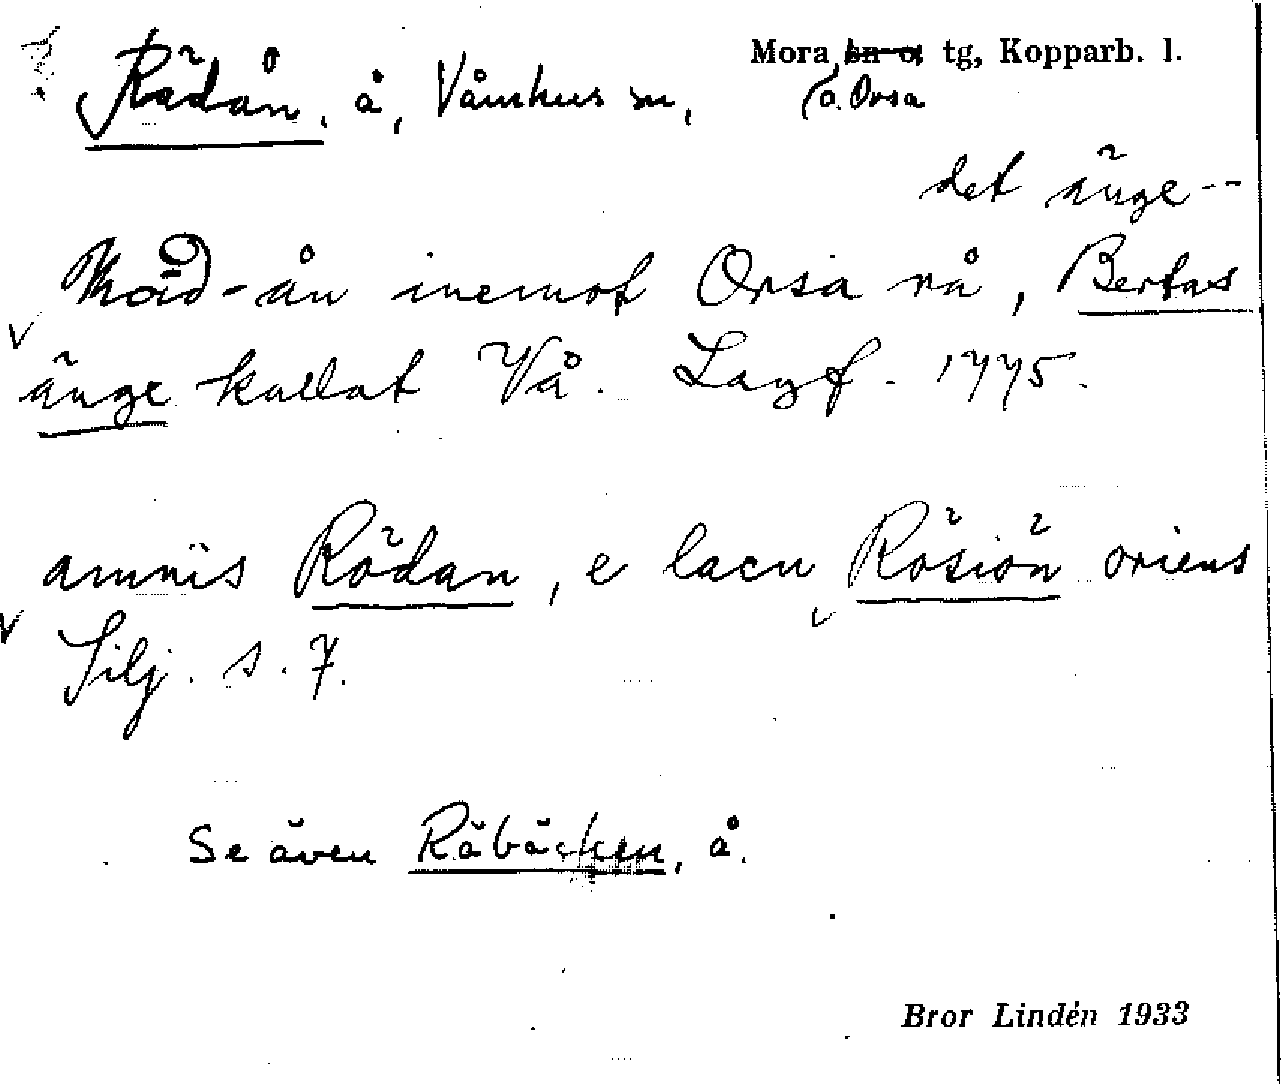 Rädån, å, Våmhus sn,
Mora sn o tg, Kopparb. l.
o. Orsa
det änge--
Mäd-ån inemot Orsa rå, Bertas
änge kallat Vå. Lagf. 1775.
amnis Rödan, e lacu Rösiön oriens
Silj. s. 7.
Se även Räbäcken, å.
Bror Lindén 1933